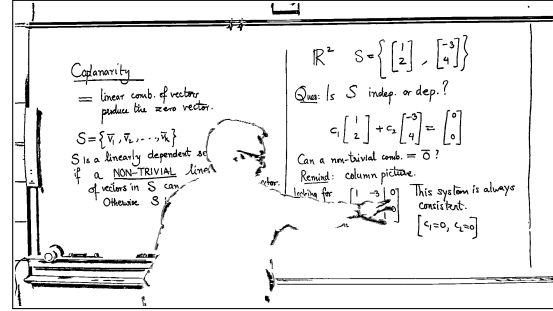 Coplanarity
= linear comb. of vectors
produce the zero vector.
S = {v̅₁, v̅₂, . . , v̅ₖ}
S is a linearly dependent se
if a NON-TRIVIAL line
of vectors in S can
Otherwise S i
ℝ² S = { [1 2] , [-3 4] }
Ques: Is S indep. or dep.?
c₁ [1 2] + c₂ [-3 4] = [0 0]
Can a non-trivial comb. = 0̅ ?
Remind: column picture.
looking for [1 -3 | 0
This system is always
consistent.
[c₁=0, c₂=0]